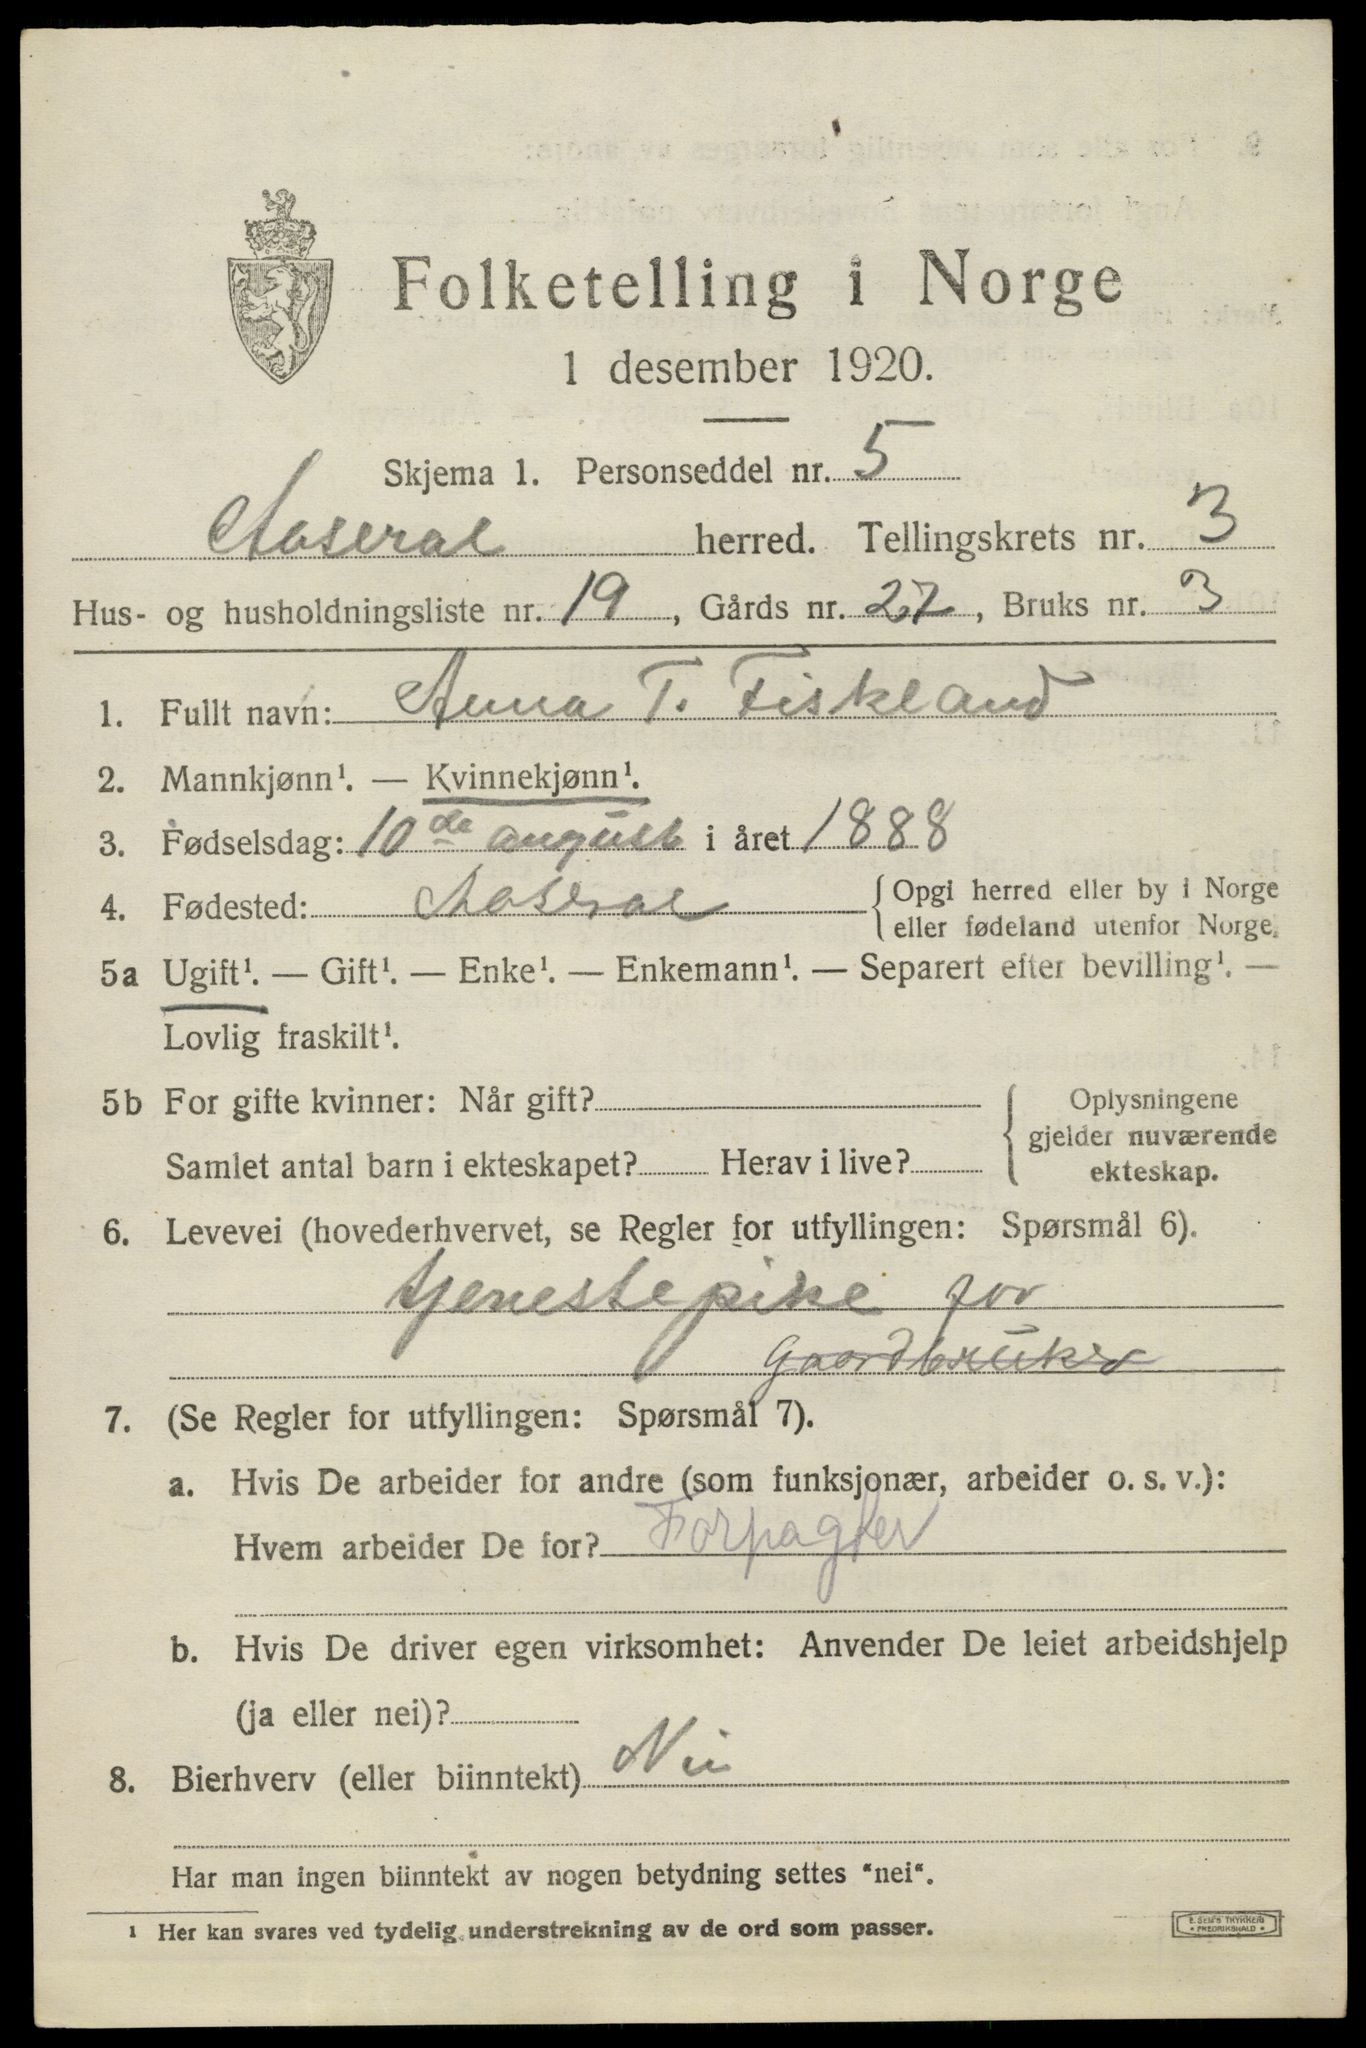 Folketelling i Norge
1 desember 1920.
Skjema 1. Personseddel nr. 5
Aaseral herred. Tellingskrets nr. 3
Hus- og husholdningsliste nr. 19, Gårds nr. 27, Bruks nr. 3
1. Fullt navn: Anna T. Fiskland
2. Mannkjønn¹. — Kvinnekjønn¹.
3. Fødselsdag: 10de august i året 1888
4. Fødested: Aaseral { Opgi herred eller by i Norge
eller fødeland utenfor Norge.
5a Ugift¹. — Gift¹. — Enke¹. — Enkemann¹. — Separert efter bevilling¹. —
Lovlig fraskilt¹.
5b For gifte kvinner: Når gift? { Oplysningene
gjelder nuværende
Samlet antal barn i ekteskapet? Herav i live? ekteskap.
6. Levevei (hovederhvervet, se Regler for utfyllingen: Spørsmål 6).
tjenestepike for
Gaardbruker
7. (Se Regler for utfyllingen: Spørsmål 7).
a. Hvis De arbeider for andre (som funksjonær, arbeider o. s. v.):
Hvem arbeider De for? Forpagter
b. Hvis De driver egen virksomhet: Anvender De leiet arbeidshjelp
(ja eller nei)?
8. Bierhverv (eller biinntekt) Nei
Har man ingen biinntekt av nogen betydning settes "nei".
¹ Her kan svares ved tydelig understrekning av de ord som passer.
E. SEM'S TRYKKERI
FREDRIKSHALD